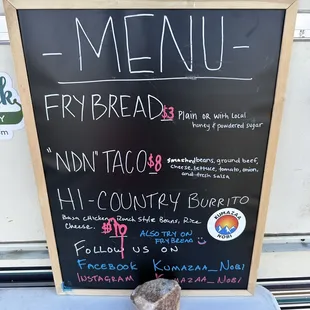 - MENU -
FRYBREAD $3 Plain OR with Local
honey & powdered sugar
"NDN" TACO $8 beans, ground beef,
cheese, lettuce, tomato, onion,
and fresh salsa
HI-COUNTRY BURRITO
Chicken, Ranch Style Beans, Rice
Cheese. $10
ALSO TRY ON
FRYBREAD
FOLLOW US ON
FACEBOOK KUMAZAA_NOBI
INSTAGRAM KUMAZAA_NOBI
KUMAZAA
NOBI